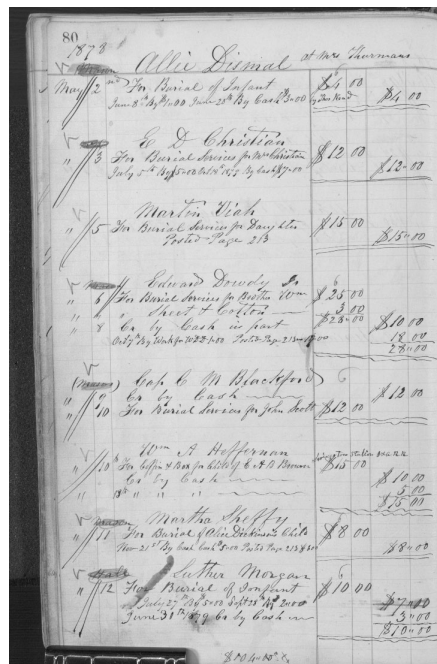 80
1878
Allie Dismal at Mrs Thurmans
May 2 For Burial of Infant $4 00
June 8th By $1=00 June 28th By Cash 3=00 $4 00
E D Christian
" 3 For Burial Services for Mrs Christian $12 00
July 5th By 5=00 1879 By Cash 7=00 $12=00
Martin Viah
" 5 For Burial Services for Daughter $15 00
Posted Page 213 $15=00
Edward Dowdy
" 6 For Burial Services for Brother Wm $25 00
" " Sheet & Cotton 3 00
$28=00
" 8 Cr by Cash in part $10 00
By Work for Posted Page 213 18 00
28=00
Cap C M Blackford
" 9 Cr by Cash $12 00
" 10 For Burial Services for John Scott $12 00
Wm A Heffernan
" 10 For Coffin & Box for Child of $15 00
" Cr by Cash $10 00
" " " " 5 00
$15 00
Martha Sheffy
" 11 For Burial of Alice Dickinson's Child $8 00
Nov 21st By Cash 5=00 Posted Page 213 $8=00
Luther Morgan
" 12 For Burial of Infant $10 00
July 27th By 5=00 Sept 28th By 2=00 $7=00
June 31st 1879 Cr by Cash 3=00
$10=00